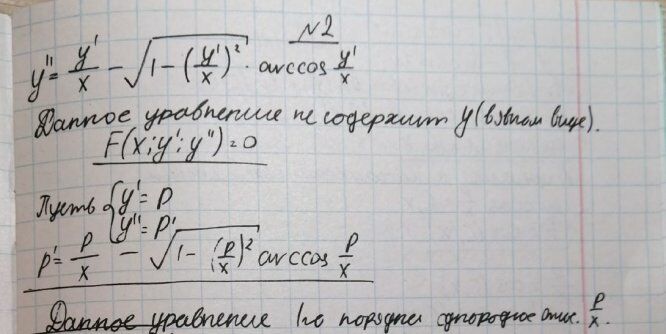 N2
y'' = y'/x - √(1 - (y'/x)²) · arccos y'/x
Данное уравнение не содержит y (в явном виде).
F(x; y'; y'') = 0
Пусть { y' = p
y'' = p'
p' = p/x - √(1 - (p/x)²) arccos p/x
Данное уравнение 1го порядка однородное отн. p/x.